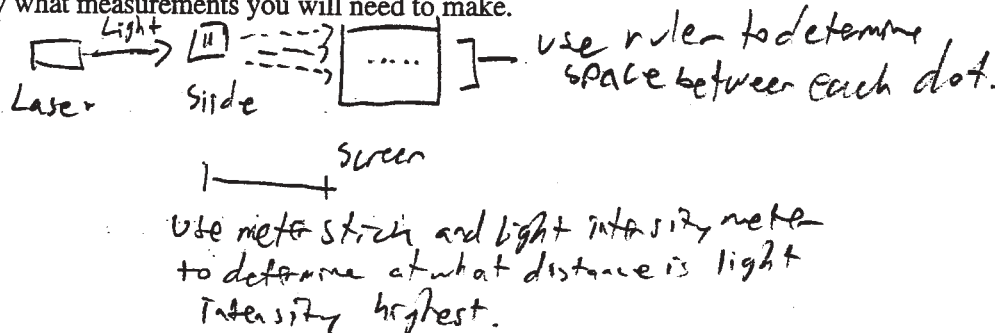 what measurements you will need to make.
Light
Laser
Slide
use ruler to determine
space between each dot.
Screen
Use meter stick and light intensity meter
to determine at what distance is light
intensity highest.